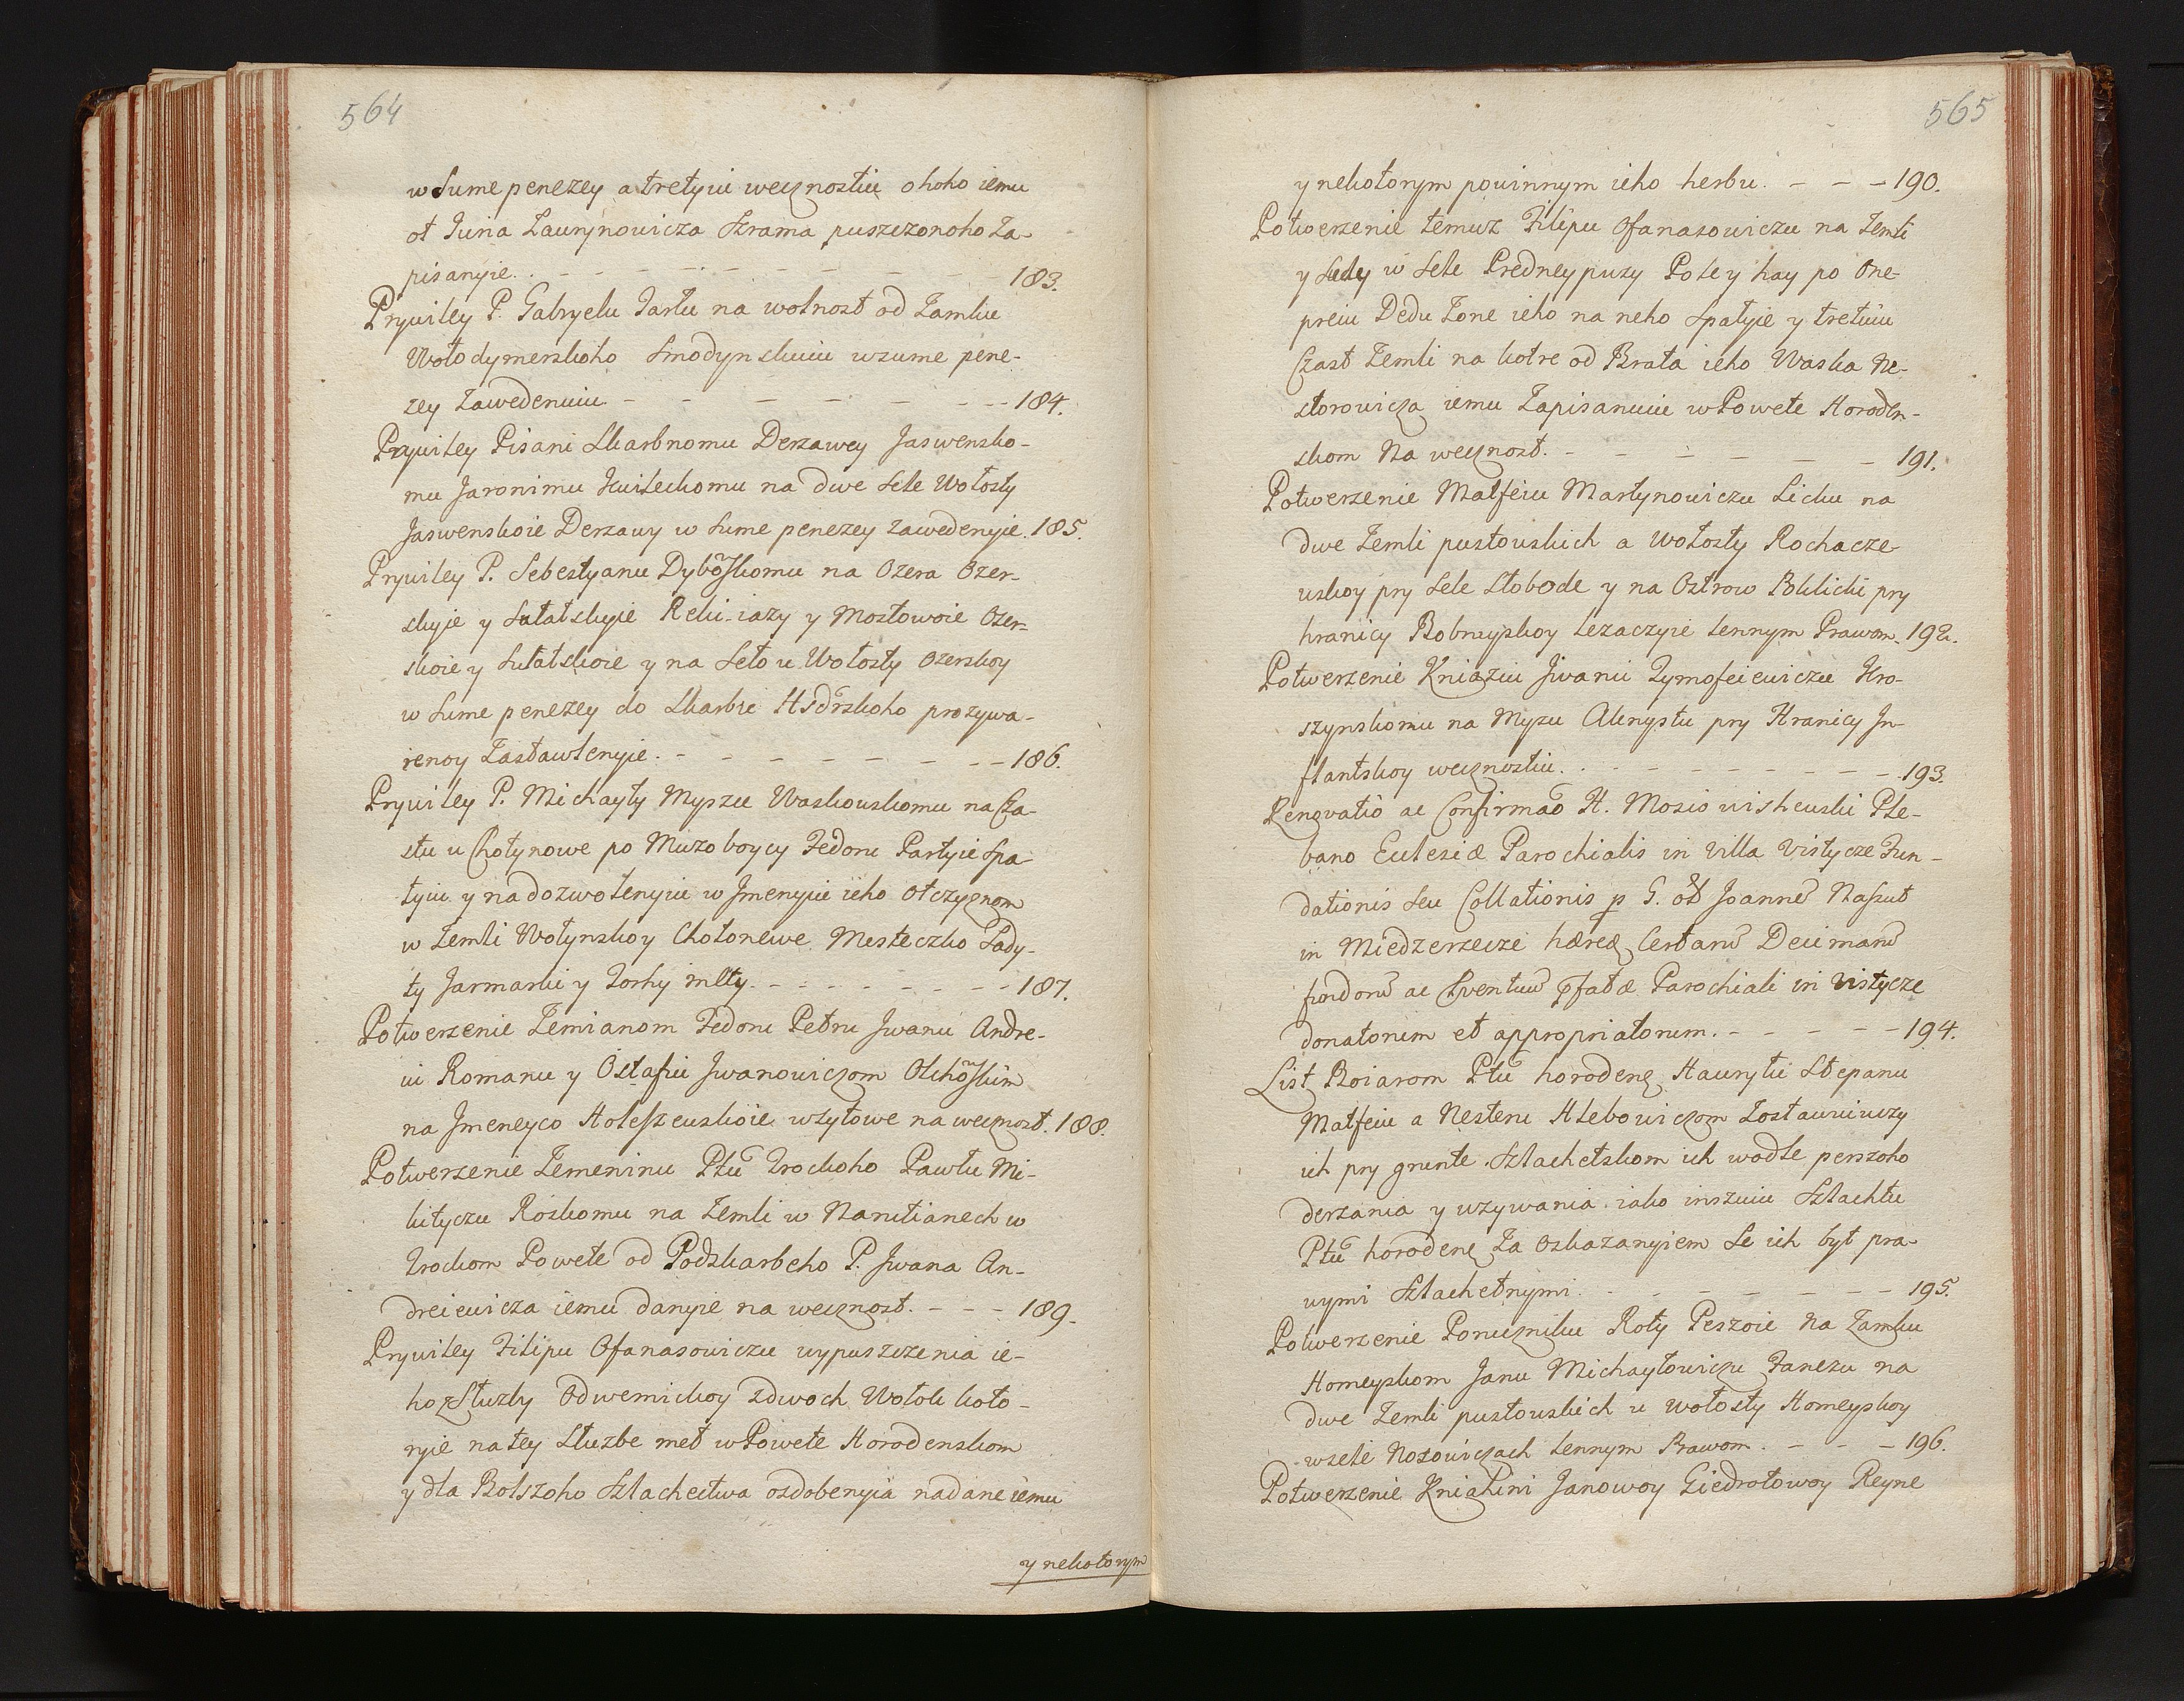 564
w Sume penezey a tretyiu wecznostiu ohoho iemu
ot Juria Laurynowicza Szrama puszczonoho Za-
pisanyie. . - - - - - - - - - 183.
Prywiley P. Gabryelu Jartu na wolnost od Zamku
Wołodymerskoho Smodynskuiu wsume pene-
zey Zawedenuiu - - - - - - - 184.
Prywiley Pisani Skarbnomu Derzawcy Jaswensko-
mu Jaronimu Kwileckomu na dwe Sele Wołosty
Jaswenskoie Derzawy w Sume penezey zawedenyie. 185.
Prywiley P. Sebestyanu Dybowskomu na Ozera Ozer-
skyie y Sułatskyie Reki-iazy y Mostowoie Ozer-
skoie y Sułatskoie y na Seło u Wołosty Ozerskoy
w Sume penezey do Skarbie Hsdrskoho prozywa-
renoy Zastawlenyie. - - - - - - - - 186.
Prywiley P. Michayły Myszee Waskouskomu na Cza-
stu u Chotynowe po Muzoboycy Fedoru Partyie Spa
łyiu y na dozwolenyiu w Jmenyiu ieho Otczyznom
w Zemli Wołynskoy Chotonewe Mesteczko Sady-
ty Jarmarki y Torhy mety. - - - - - - - 187.
Potwerzenie Zemianom Fedoru Petru Jwanu Andre-
iu Romanu y Ostafiu Jwanowiczom Olchowskim
na Jmeneyco Holeszeuskoie wzytowe na wecznost. 188.
Potwerzenie Zemeninu Ptu Trockoho Pawłu Mi-
kityczu Roskomu na Zemli w Narutianech w
Trockom Powete od Podskarbeho P. Jwana An-
dreiewicza iemu danyie na wecznost. - - - 189.
Prywiley Filipu Ofanasowiczu wypuszczenia ie-
ho z Słuzby Odwernickoy z dwoch Wołok koto-
ryie na tey Słuzbe meł w Powete Horodenskom
y dla Bolszoho Szlachectwa ozdobenyia nadane iemu
y nekotorym
565
y nekotorym powinnym ieho herbu. - - - 190.
Potwerzenie temuz Filipu Ofanasowiczu na Zemli
y Sudy w Sele Predneypuzy Pole y hay po One-
preiu Dedu Zone ieho na neho Spałyie y tretiuiu
Czast Zemli na kotre od Brata ieho Waska Ne-
storowicza iemu Zapisanuiu w Powete Horoden-
skom Na wecznost. - - - - - - 191.
Potwerzenie Matfeiu Martynowiczu Licku na
dwe Zemli pustouskich a Wołosty Rochacze-
uskoy pry Sele Słobode y na Ostrow Boklicki pry
hranicy Bobruyskoy Lezaczyie Lennym Prawom. 192.
Potwerzenie Kniaziu Jwanu Tymofeiewiczu Kro-
szynskomu na Myzu Alenystu pry Hranicy Jn-
flantskoy wecznostiu. . - - - - - - - 193.
Renovatio ac Confirmao H. Mosiowisheuski Ple-
bano Eclesiæ Parochialis in Villa Vistycze Fun-
dationis Seu Collationis p G. olt Joannē Naszut
in Miedzerzecze hæredę Certarū Decimarū
fundorū ac Proventuū pfatæ Parochiali in Vistycze
donatorum et appropriatorum. - - - - - 194.
List Boiarom Ptu horodenę Hauryłu Stepanu
Matfeiu a Nesteru Hlebowiczom Zostawuiuczy
ich pry grunte Szlachetskom ich wodle perszoho
derzania y uzywania iako inszuiu Szlachtu
Ptu horodenę Za Oskazanyiem Se ich byt pra-
wymi Szlachetnymi. - - - - - - - 195.
Potwerzenie Porucznikiu Roty Peszoie Na Zamku
Homeyskom Janu Michayłowiczu Faneza na
dwe Zemli pustouskich u Wołosty Homeyskoy
w sele Nosowiczach Lennym Prawom. - - - 196.
Potwerzenie Kniahini Janowoy Giedrotowoy Reyne